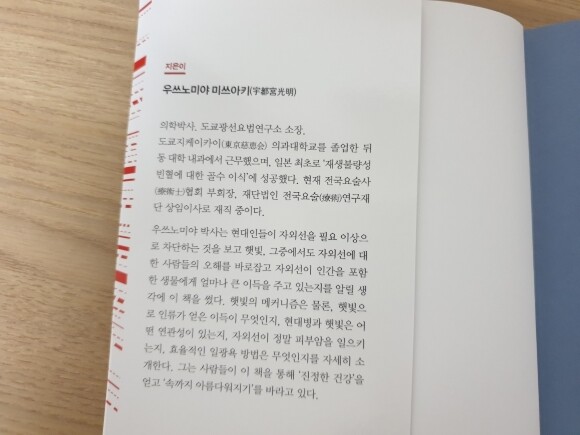 지은이
우쓰노미야 미쓰아키(宇都宮光明)
의학박사. 도쿄광선요법연구소 소장.
도쿄지케이카이(東京慈恵会) 의과대학교를 졸업한 뒤
동 대학 내과에서 근무했으며, 일본 최초로 '재생불량성
빈혈에 대한 골수 이식'에 성공했다. 현재 전국요술사
(療術士)협회 부회장, 재단법인 전국요술(療術)연구재
단 상임이사로 재직 중이다.
우쓰노미야 박사는 현대인들이 자외선을 필요 이상으
로 차단하는 것을 보고 햇빛, 그중에서도 자외선에 대
한 사람들의 오해를 바로잡고 자외선이 인간을 포함
한 생물에게 얼마나 큰 이득을 주고 있는지를 알릴 생
각에 이 책을 썼다. 햇빛의 메커니즘은 물론, 햇빛으
로 인류가 얻은 이득이 무엇인지, 현대병과 햇빛은 어
떤 연관성이 있는지, 자외선이 정말 피부암을 일으키
는지, 효율적인 일광욕 방법은 무엇인지를 자세히 소
개한다. 그는 사람들이 이 책을 통해 '진정한 건강'을
얻고 '속까지 아름다워지기'를 바라고 있다.